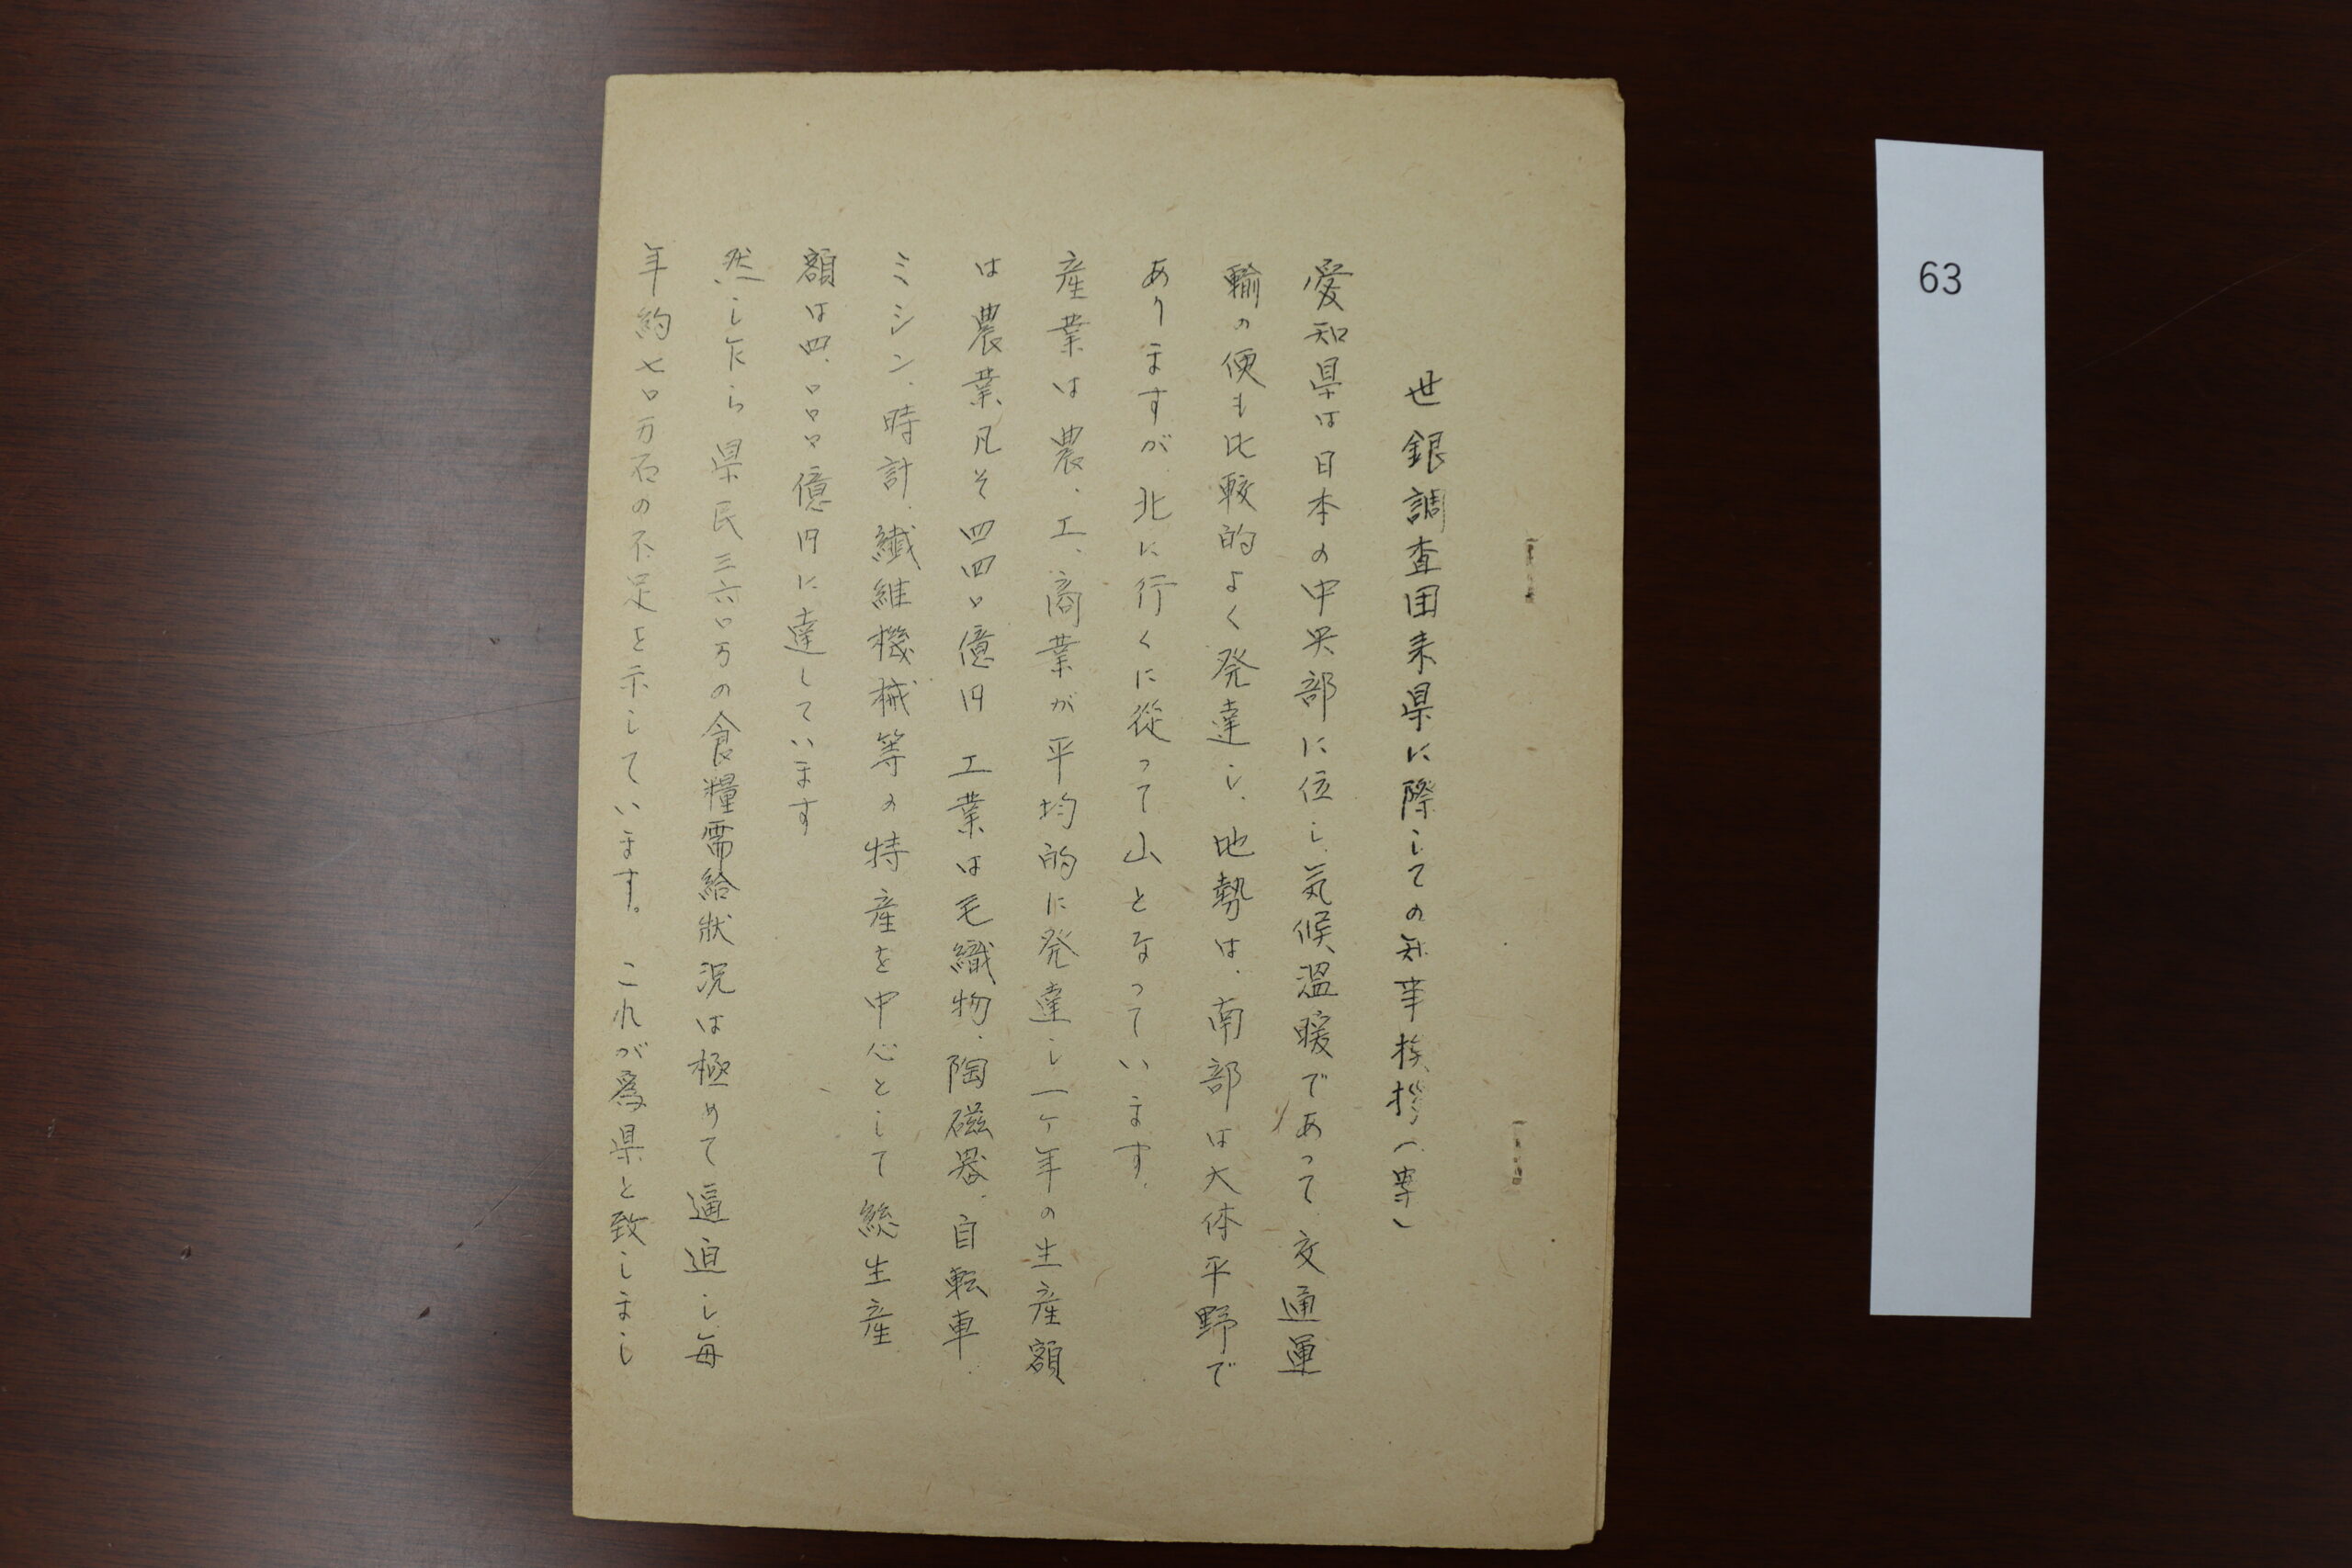 世銀調査団来県に際しての知事挨拶(草)
愛知県は日本の中央部に位し、気候温暖であって、交通運
輸の便も比較的よく発達し、地勢は、南部は大体平野で
ありますが、北に行くに従って山となっています。
産業は農、工、商業が平均的に発達し一ヶ年の生産額
は農業凡そ四四〇億円 工業は毛織物、陶磁器、自転車、
ミシン、時計、繊維機械等の特産を中心として総生産
額は四、〇〇〇億円に達しています
然し乍ら県民三六〇万の食糧需給状況は極めて逼迫し、毎
年約七〇万石の不足を示しています。これが為県と致しまし
63